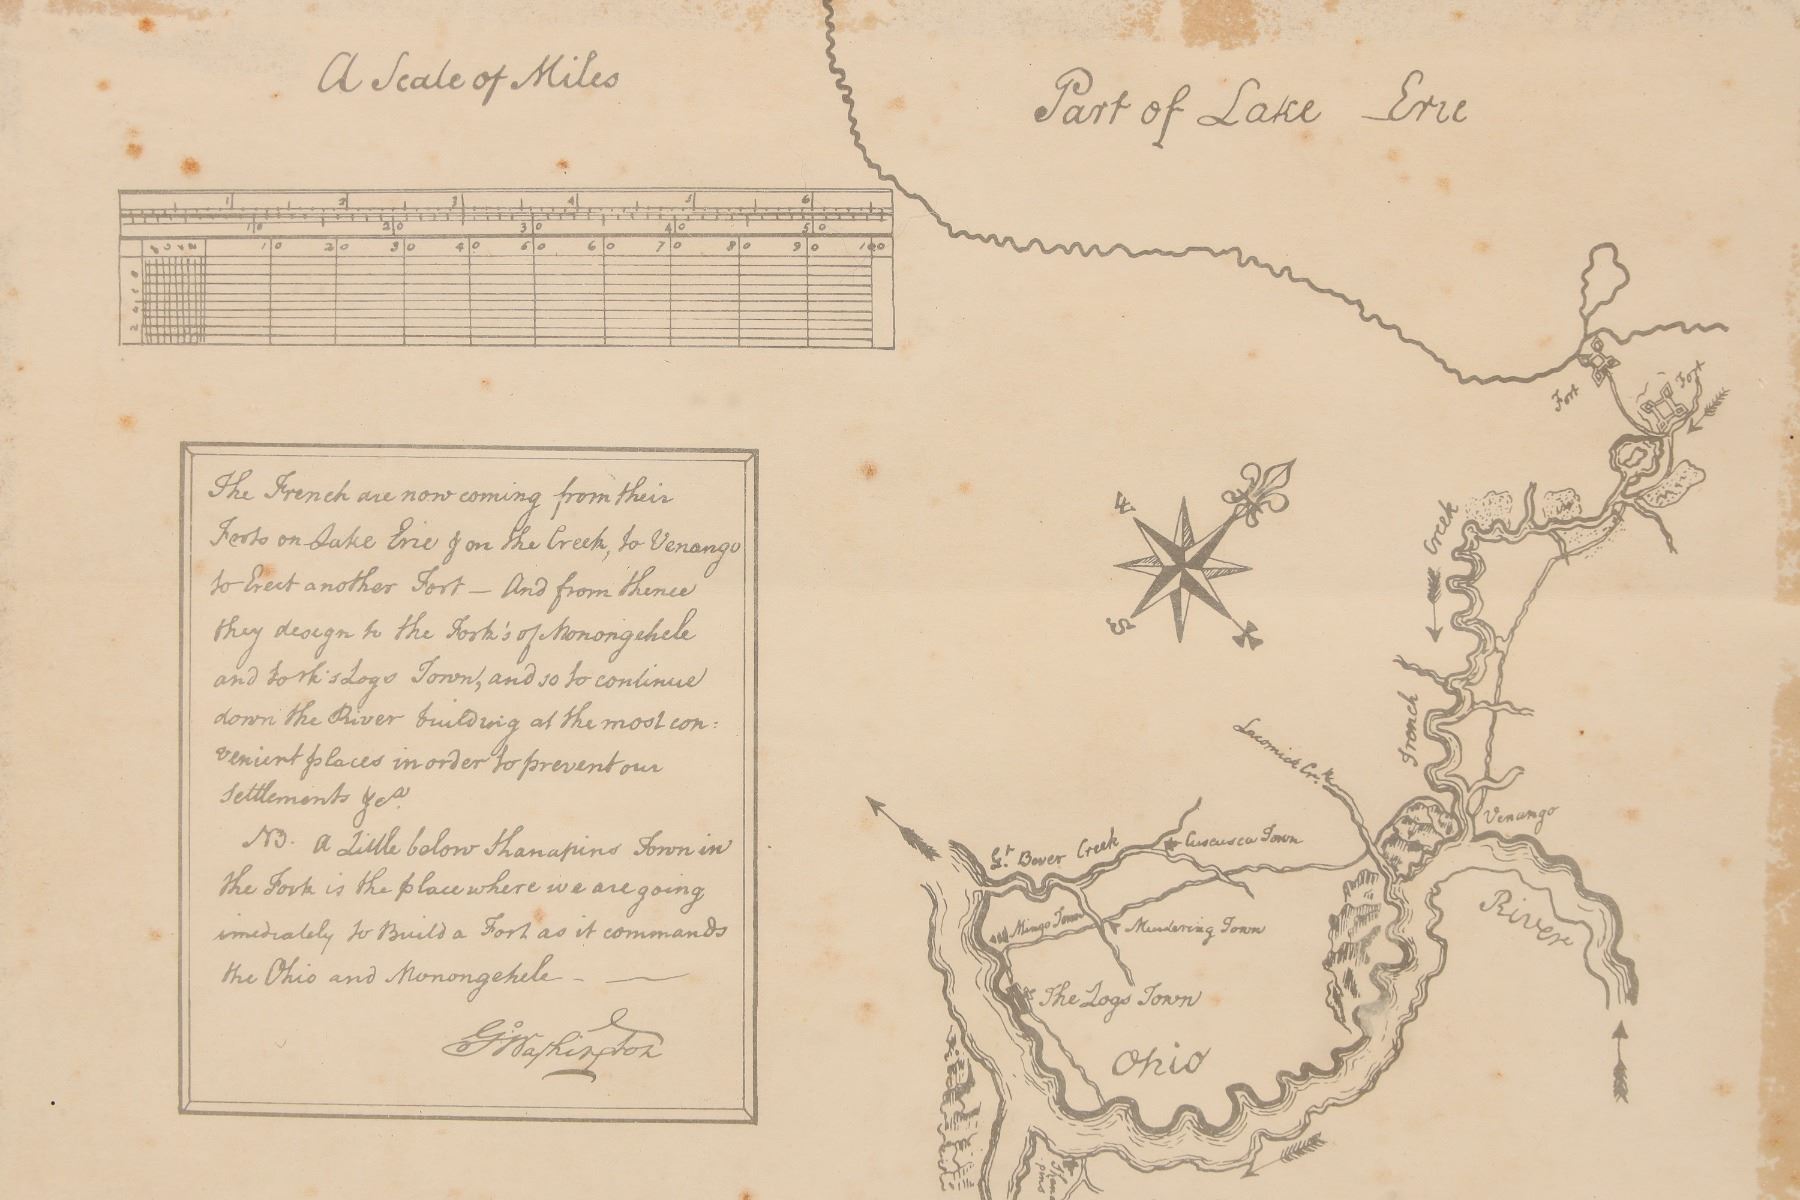 A Scale of Miles
Part of Lake Erie
1 2 3 4 5 6
10 20 30 40 50
10 20 30 40 50 60 70 80 90 100
The French are now coming from their
Forts on Lake Erie & on the Creek, to Venango
to Erect another Fort — And from thence
they design to the Fork's of Monongehele
and to the Logs Town, and so to continue
down the River building at the most con:
venient places in order to prevent our
Settlements &ca.
NB. A Little below Shanapins Town in
the Fork is the place where we are going
imediately to Build a Fort as it commands
the Ohio and Monongehele - —
G:Washington
Fort
Fort
French Creek
Lacomick Crk
Venango
Gt. Bever Creek
Cuscusca Town
Mingo Town
Murdering Town
River
The Logs Town
Ohio
Shana
pins